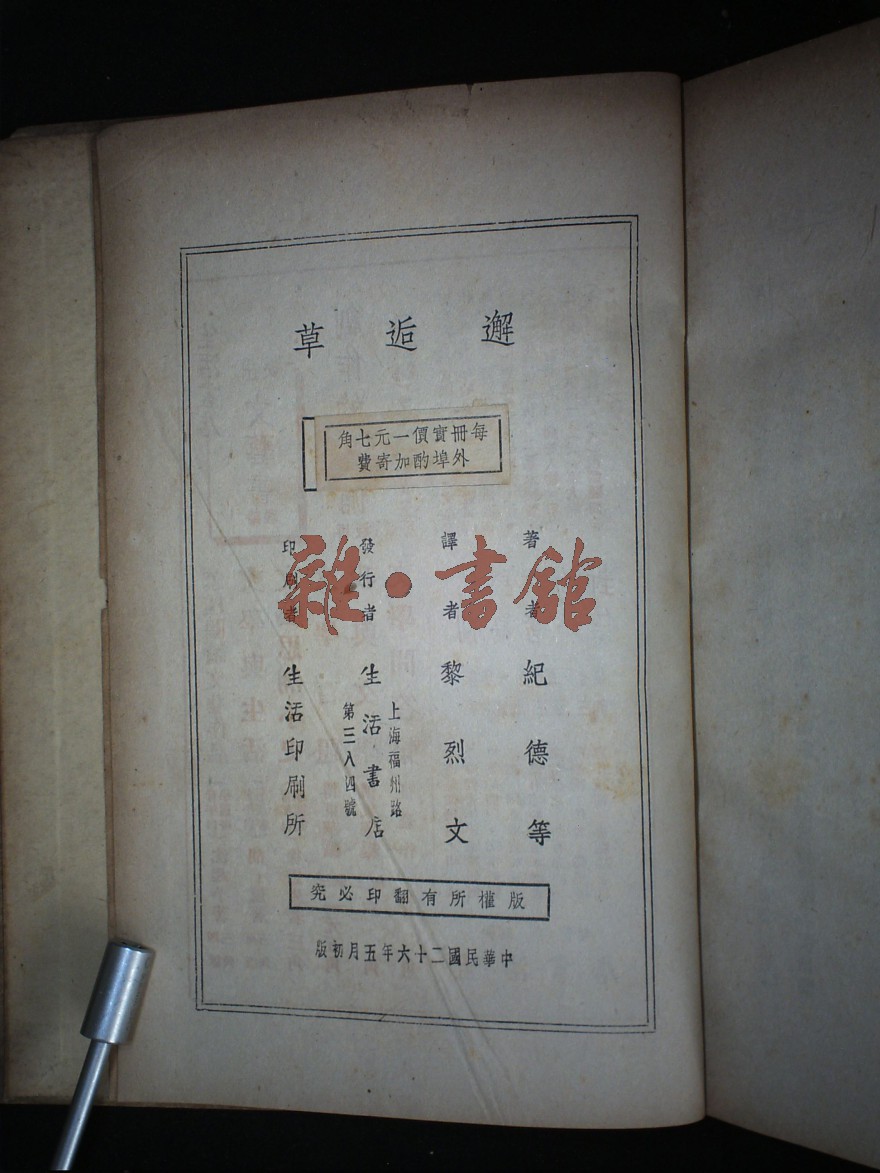 邂逅草
每冊實價一元七角
外埠酌加寄費
著者 紀德等
譯者 黎烈文
發行者 生活書店
上海福州路
第三八四號
印刷者 生活印刷所
版權所有翻印必究
中華民國二十六年五月初版
雜·書館